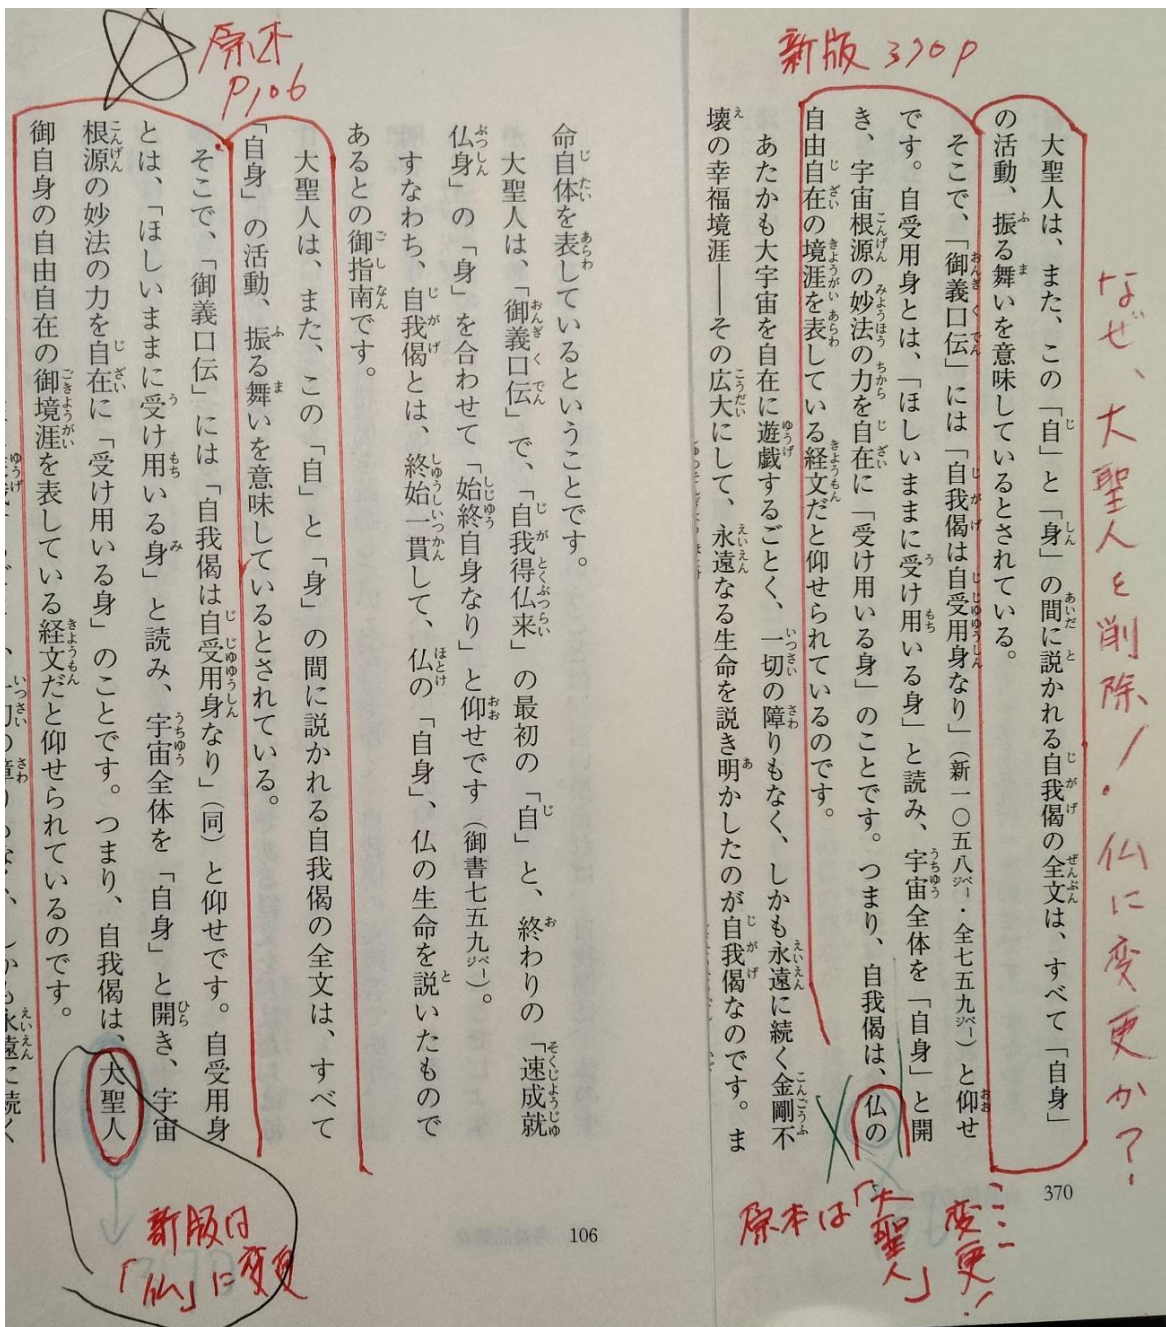 新版 370P
なぜ、大聖人を削除！仏に変更か？
大聖人は、また、この「自」と「身」の間に説かれる自我偈の全文は、すべて「自身」
の活動、振る舞いを意味しているとされている。
そこで、「御義口伝」には「自我偈は自受用身なり」（新一〇五八㌻・全七五九㌻）と仰せ
です。自受用身とは、「ほしいままに受け用いる身」と読み、宇宙全体を「自身」と開
き、宇宙根源の妙法の力を自在に「受け用いる身」のことです。つまり、自我偈は、仏の
自由自在の境涯を表している経文だと仰せられているのです。
あたかも大宇宙を自在に遊戯するごとく、一切の障りもなく、しかも永遠に続く金剛不
壊の幸福境涯――その広大にして、永遠なる生命を説き明かしたのが自我偈なのです。ま
370
ここ変更！
原本は「大聖人」
原本
P106
命自体を表しているということです。
大聖人は、「御義口伝」で、「自我得仏来」の最初の「自」と、終わりの「速成就
仏身」の「身」を合わせて「始終自身なり」と仰せです（御書七五九㌻）。
すなわち、自我偈とは、終始一貫して、仏の「自身」、仏の生命を説いたもので
あるとの御指南です。
大聖人は、また、この「自」と「身」の間に説かれる自我偈の全文は、すべて
「自身」の活動、振る舞いを意味しているとされている。
そこで、「御義口伝」には「自我偈は自受用身なり」（同）と仰せです。自受用身
とは、「ほしいままに受け用いる身」と読み、宇宙全体を「自身」と開き、宇宙
根源の妙法の力を自在に「受け用いる身」のことです。つまり、自我偈は、大聖人
御自身の自由自在の御境涯を表している経文だと仰せられているのです。
106
新版は
「仏」に変更